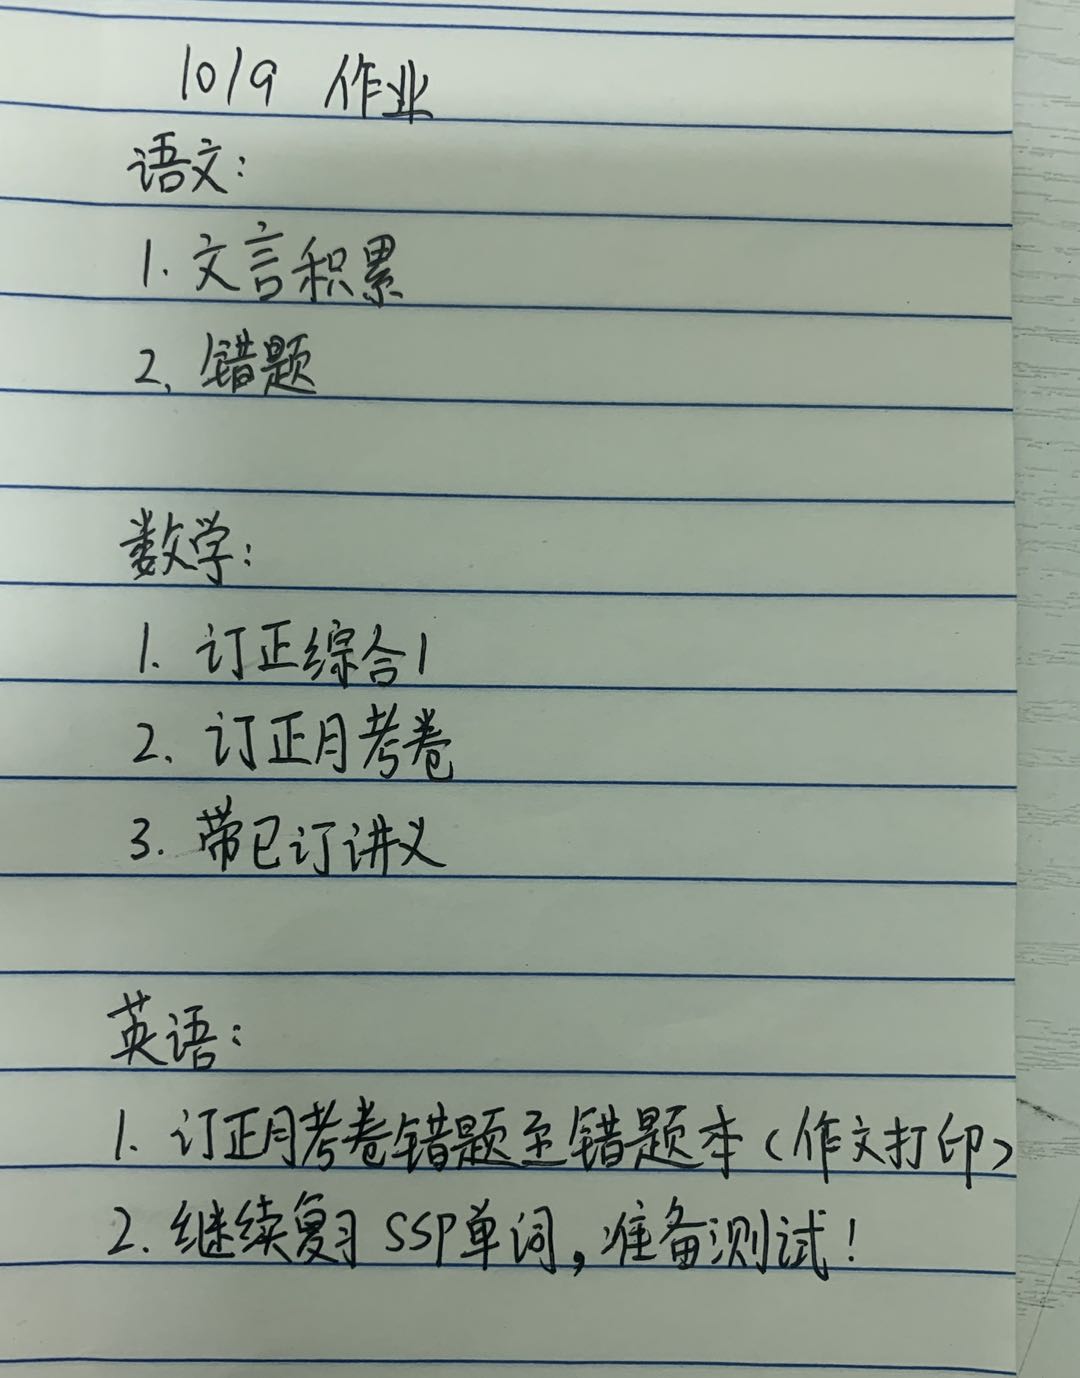 10/9 作业
语文：
1. 文言积累
2. 错题
数学：
1. 订正综合1
2. 订正月考卷
3. 带已订讲义
英语：
1. 订正月考卷错题至错题本（作文打印）
2. 继续复习SSP单词，准备测试！